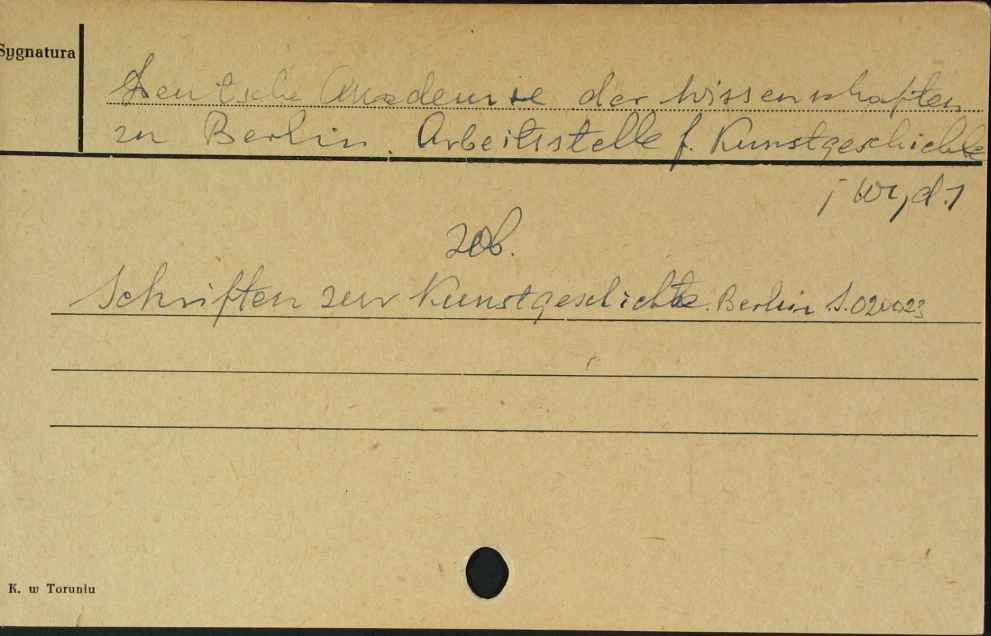 Sygnatura
Deutsche Akademie der Wissenschaften
zu Berlin. Arbeitsstelle f. Kunstgeschichte
[wyd.]
zob.
Schriften zur Kunstgeschichte. Berlin S.020023
K. w Toruniu